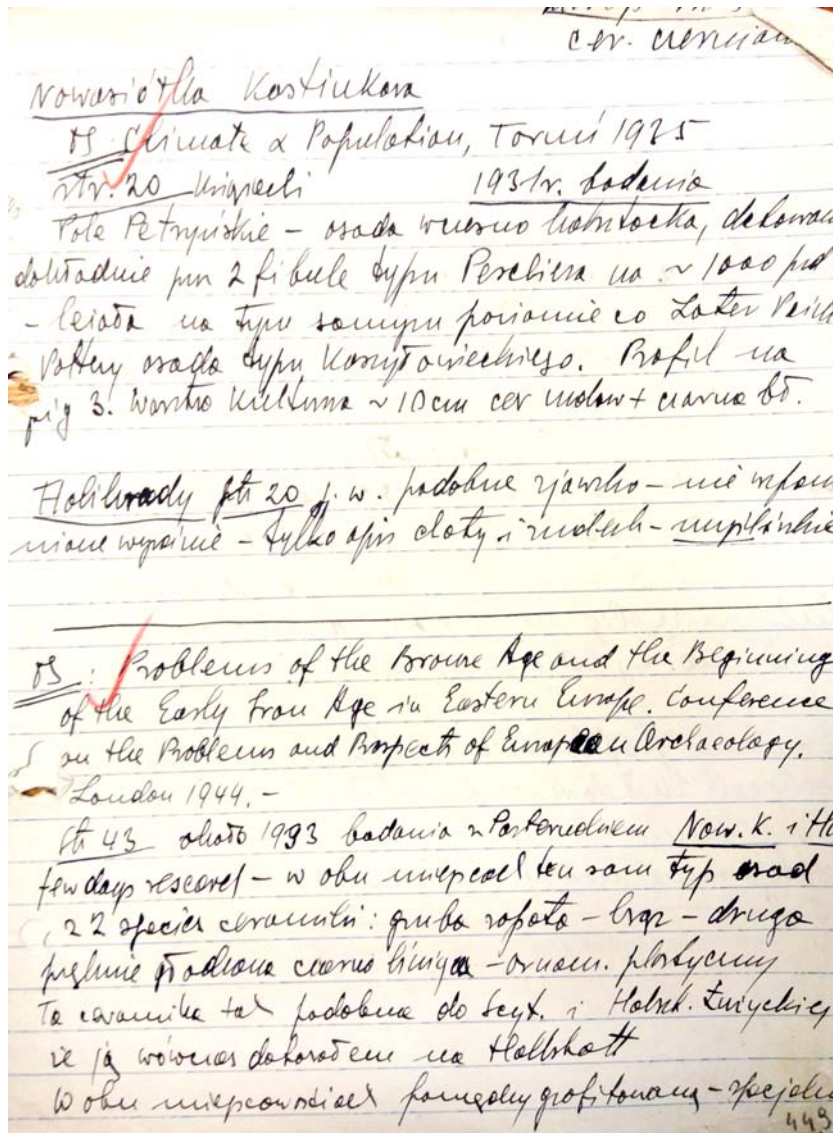 cer. czerniona
Nowosiółka Kostiukowa
TS Climate & Population, Toruń 1935
str. 20 książeczki 1931r. badania
Pole Petryńskie – osada wczesno halsztacka, datowan
dokładnie prz 2 fibule typu Peschiera na ~ 1000 prd
– leżała na tym samym poziomie co Later Pain
Pottery osada typu Koszyłowieckiego. Profil na
fig 3. warstwa kulturowa ~ 10cm cer malow + czarna bł.
Holihrady str 20 j. w. podobne zjawisko – nie wspom
niane wyraźnie – tylko opis
TS : Problems of the Bronze Age and the Beginning
of the Early Iron Age in Eastern Europe. Conference
on the Problems and Prospects of European Archaeology.
London 1944. –
str 43 około 1993 badania z Posternakiem Now. K. i H
few days research – w obu miejscach ten sam typ osad
, z 2 species ceramiki: gruba – brąz – druga
pięknie gładzona czarno lśniąca – ornam. plastyczny
Ta ceramika tak podobna do Scyt. i Halszt. Łużyckiej
że ją wówczas datowałem na Hallstatt
W obu miejscowościach grafitowaną – specjaln
449